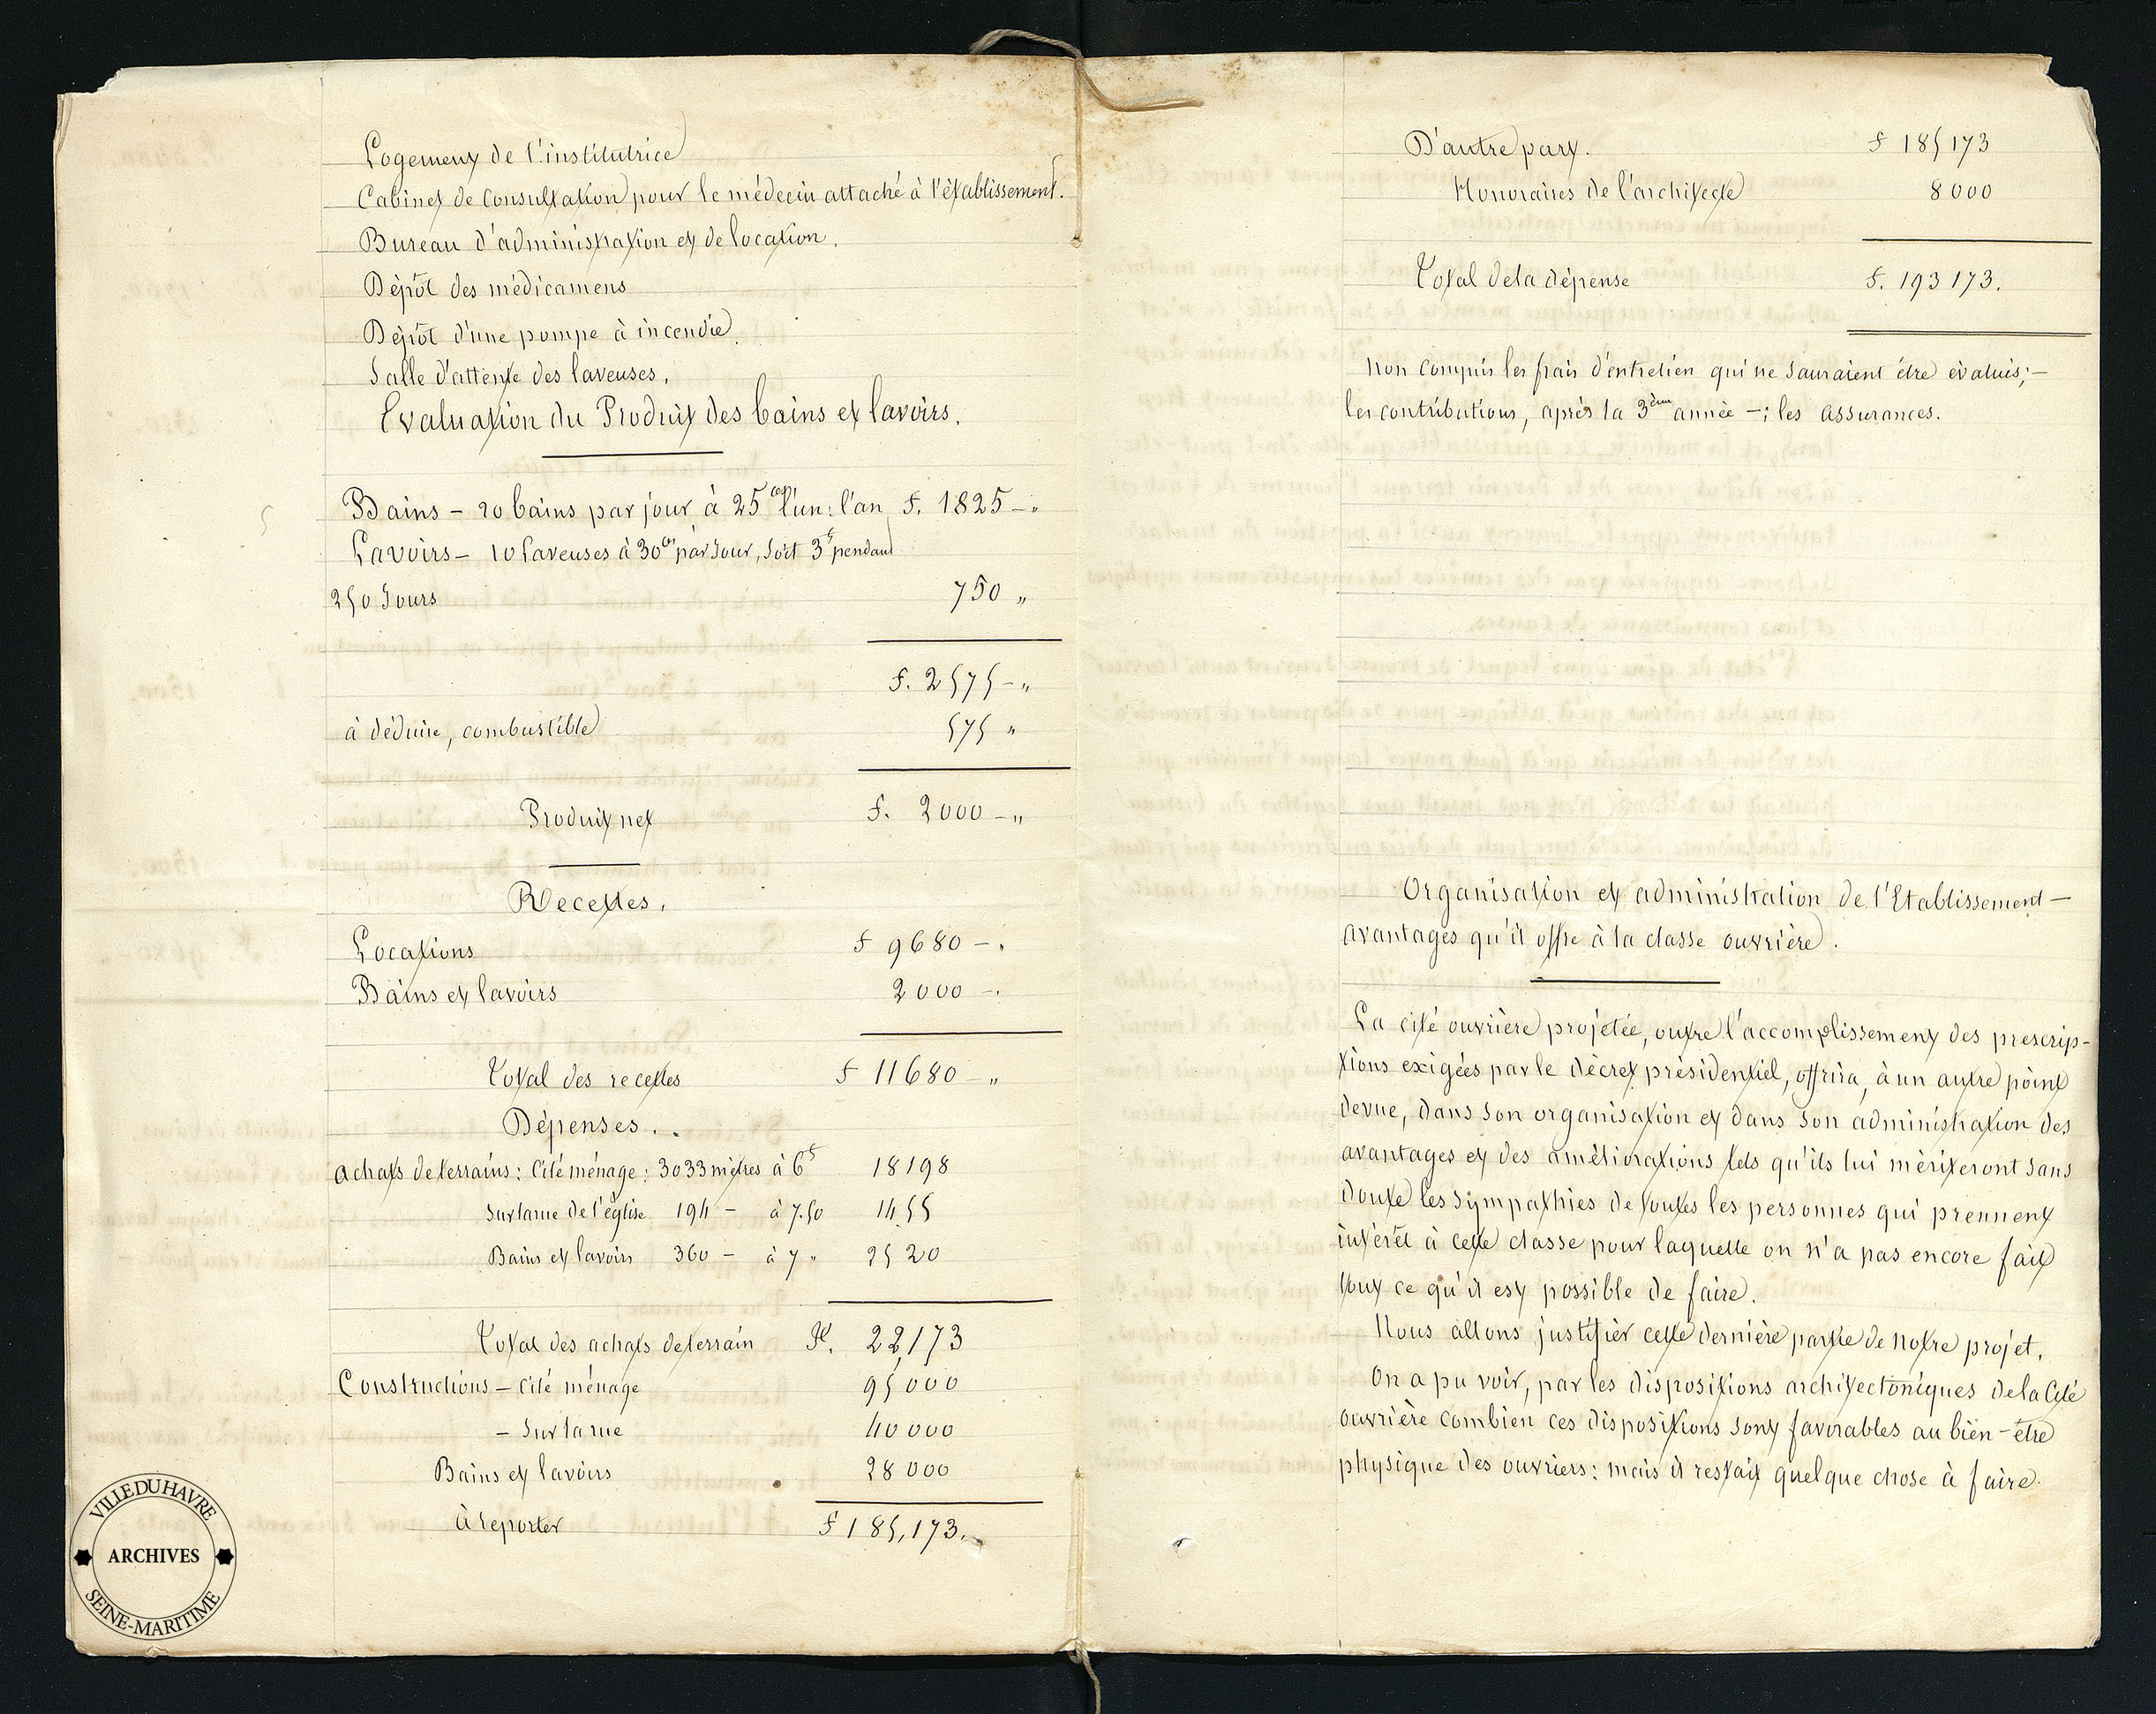 Logement de l'institutrice
Cabinet de consultation pour le médecin attaché à l'établissement.
Bureau d'administration et de location.
Dépôt des médicamens
Dépôt d'une pompe à incendie.
Salle d'attente des laveuses.
Evaluation du Produit des bains et lavoirs.
Bains – 20 bains par jour à 25 cent l'un : l'an f. 1825 – "
Lavoirs – 10 laveuses à 30 ces par jour, soit 3 f pendant
250 jours 750 "
f. 2575 – "
à déduire, combustible 575 "
Produit net f. 2000 – "
Recettes.
Locations f 9680 – "
Bains et lavoirs 2000 – "
Total des recettes f 11680 – "
Dépenses.
achats de terrains : Cité ménage : 3033 mètres à 6 f 18198
sur la rue de l'église 194 – à 7.50 1455
Bains et lavoirs 360 – à 7 " 2520
Total des achats de terrain F. 22,173
Constructions – Cité ménage 95000
– Sur la rue 40000
Bains et lavoirs 28000
à reporter f 185,173.
VILLE DU HAVRE
ARCHIVES
SEINE-MARITIME
D'autre part. f 185173
Honoraires de l'architecte 8000
Total de la dépense f. 193173.
non compris les frais d'entretien qui ne sauraient être évalués ; –
les contributions, après la 3ème année – ; les assurances.
Organisation et administration de l'Etablissement –
avantages qu'il offre à la classe ouvrière.
La cité ouvrière projetée, outre l'accomplissement des prescrip-
tions exigées par le décret présidentiel, offrira, à un autre point
de vue, dans son organisation et dans son administration des
avantages et des améliorations tels qu'ils lui mériteront sans
doute les sympathies de toutes les personnes qui prennent
intérêt à cette classe pour laquelle on n'a pas encore fait
tout ce qu'il est possible de faire.
Nous allons justifier cette dernière partie de notre projet.
On a pu voir, par les dispositions architectoniques de la Cité
ouvrière combien ces dispositions sont favorables au bien-être
physique des ouvriers : mais il restait quelque chose à faire.